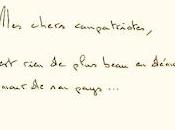 Mes chers compatriotes,
est rien de plus beau en dém
mour de son pays ...